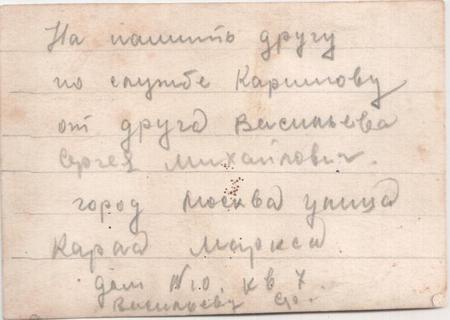 На памить другу
по службе Каримову
от друга Васильева
Сергея Михайлович.
город Москва улица
Карла Маркса
дом №10. кв 7.
Васильеву